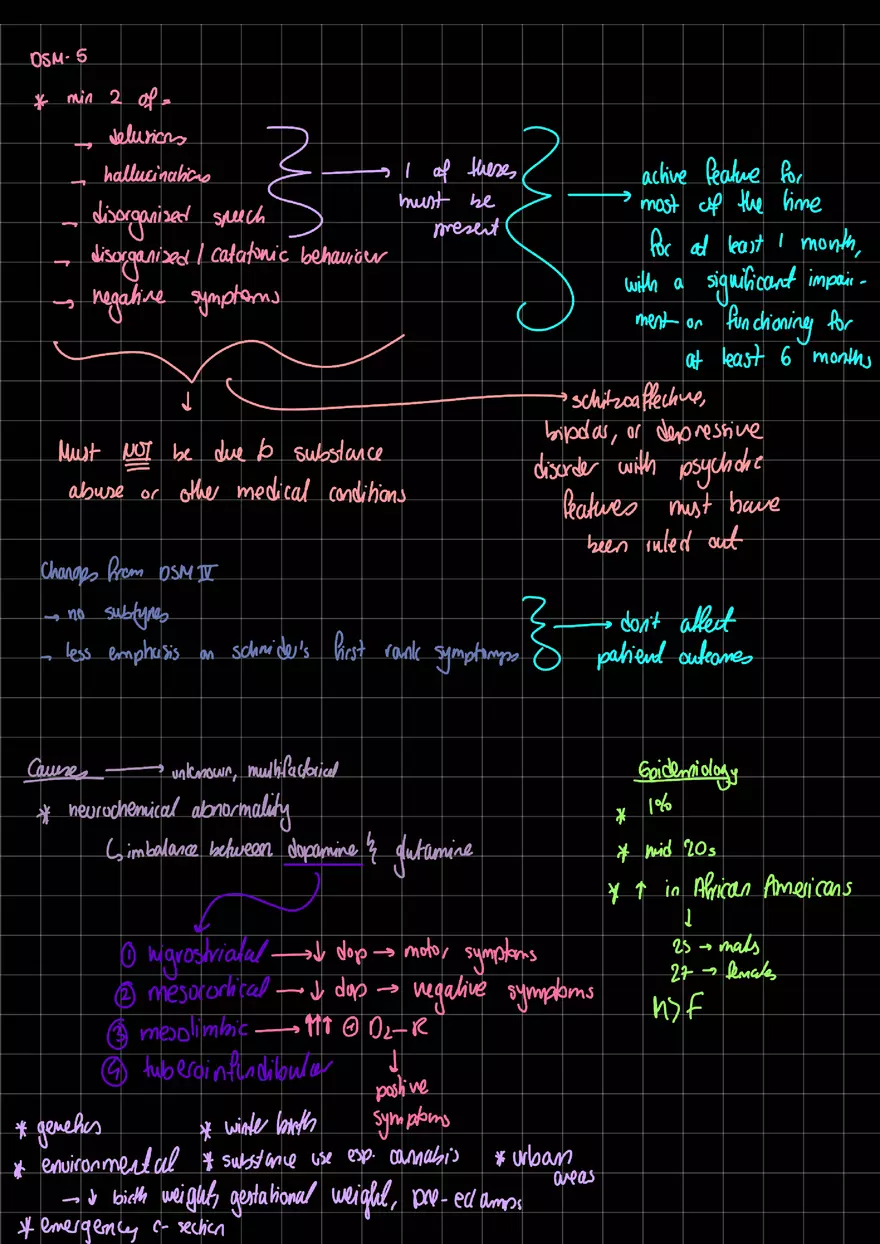 DSM-5
* min 2 of =
→ delusions
→ hallucinations
→ disorganized speech
→ disorganized / catatonic behaviour
→ negative symptoms
→ 1 of these
must be
present
→ active feature for
most of the time
for at least 1 month,
with a significant impair-
ment on functioning for
at least 6 months
↓
Must NOT be due to substance
abuse or other medical conditions
→ schitzoaffective,
bipolar, or depressive
disorder with psychotic
features must have
been ruled out
Changes from DSM IV
→ no subtypes
→ less emphasis on schnider's first rank symptoms
→ don't affect
patient outcomes
Causes → unknown, multifactorial
* neurochemical abnormality
↳ imbalance between dopamine & glutamine
① nigrostriatal → ↓ dop → motor symptoms
② mesocortical → ↓ dop → negative symptoms
③ mesolimbic → ↑↑↑ ⊕ D2-R
↓
positive
symptoms
④ tuberoinfundibular
* genetics
* winter birth
* environmental
* substance use esp. cannabis
* urban
areas
→ ↓ birth weight, gestational weight, pre-eclamps
* emergency c-section
Epidemiology
* 1%
* mid 20s
* ↑ in African Americans
↓
25 → males
27 → females
M>F